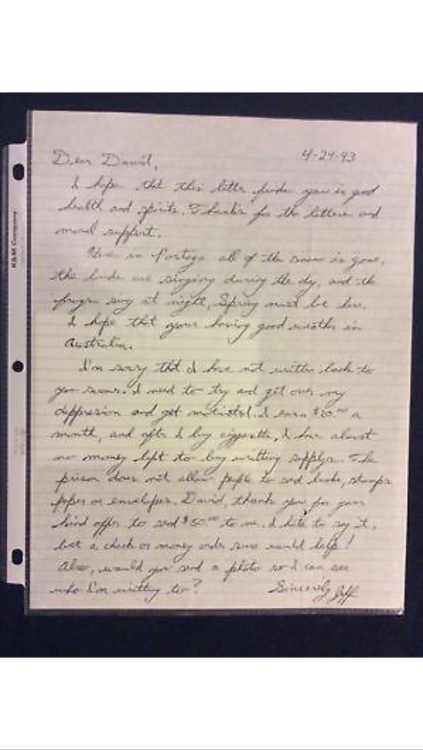 4-24-93
Dear David,
I hope that this letter finds you in good
health and spirits. Thanks for the letters and
moral support.
Here in Portage all of the snow is gone,
the birds are singing during the day, and the
frogs sing at night, Spring must be here.
I hope that your having good weather in
Australia.
I'm sorry that I have not written back to
you sooner. I need to try and get over my
deppression and get motivated. I earn $20.00 a
month, and after I buy cigarettes, I have almost
no money left to buy writting supplys. The
prison does not allow people to send books, stamps
paper or envelopes. David, thank you for your
kind offer to send $50.00 to me. I hate to say it,
but a check or money order sure would help!
Also, would you send a photo so I can see
who I'm writting to?
Sincerely Jeff
K&M Company